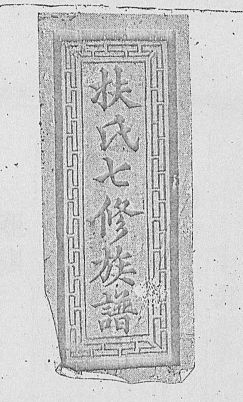 扶氏七修族譜